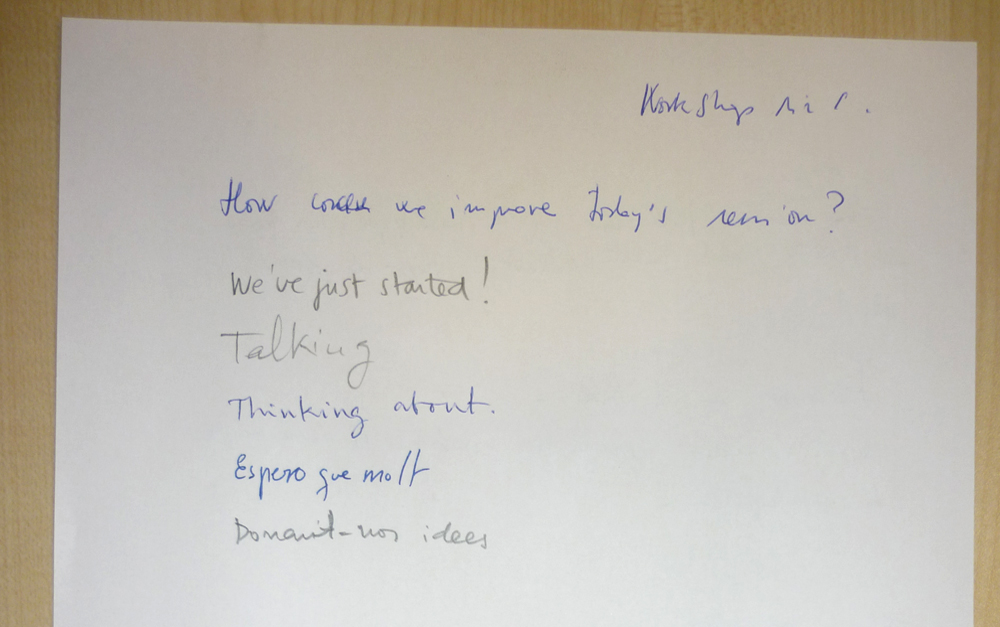 Workshop
How we improve today's
We've just started!
Talking
Thinking about.
Espero que molt
Donant-nos idees